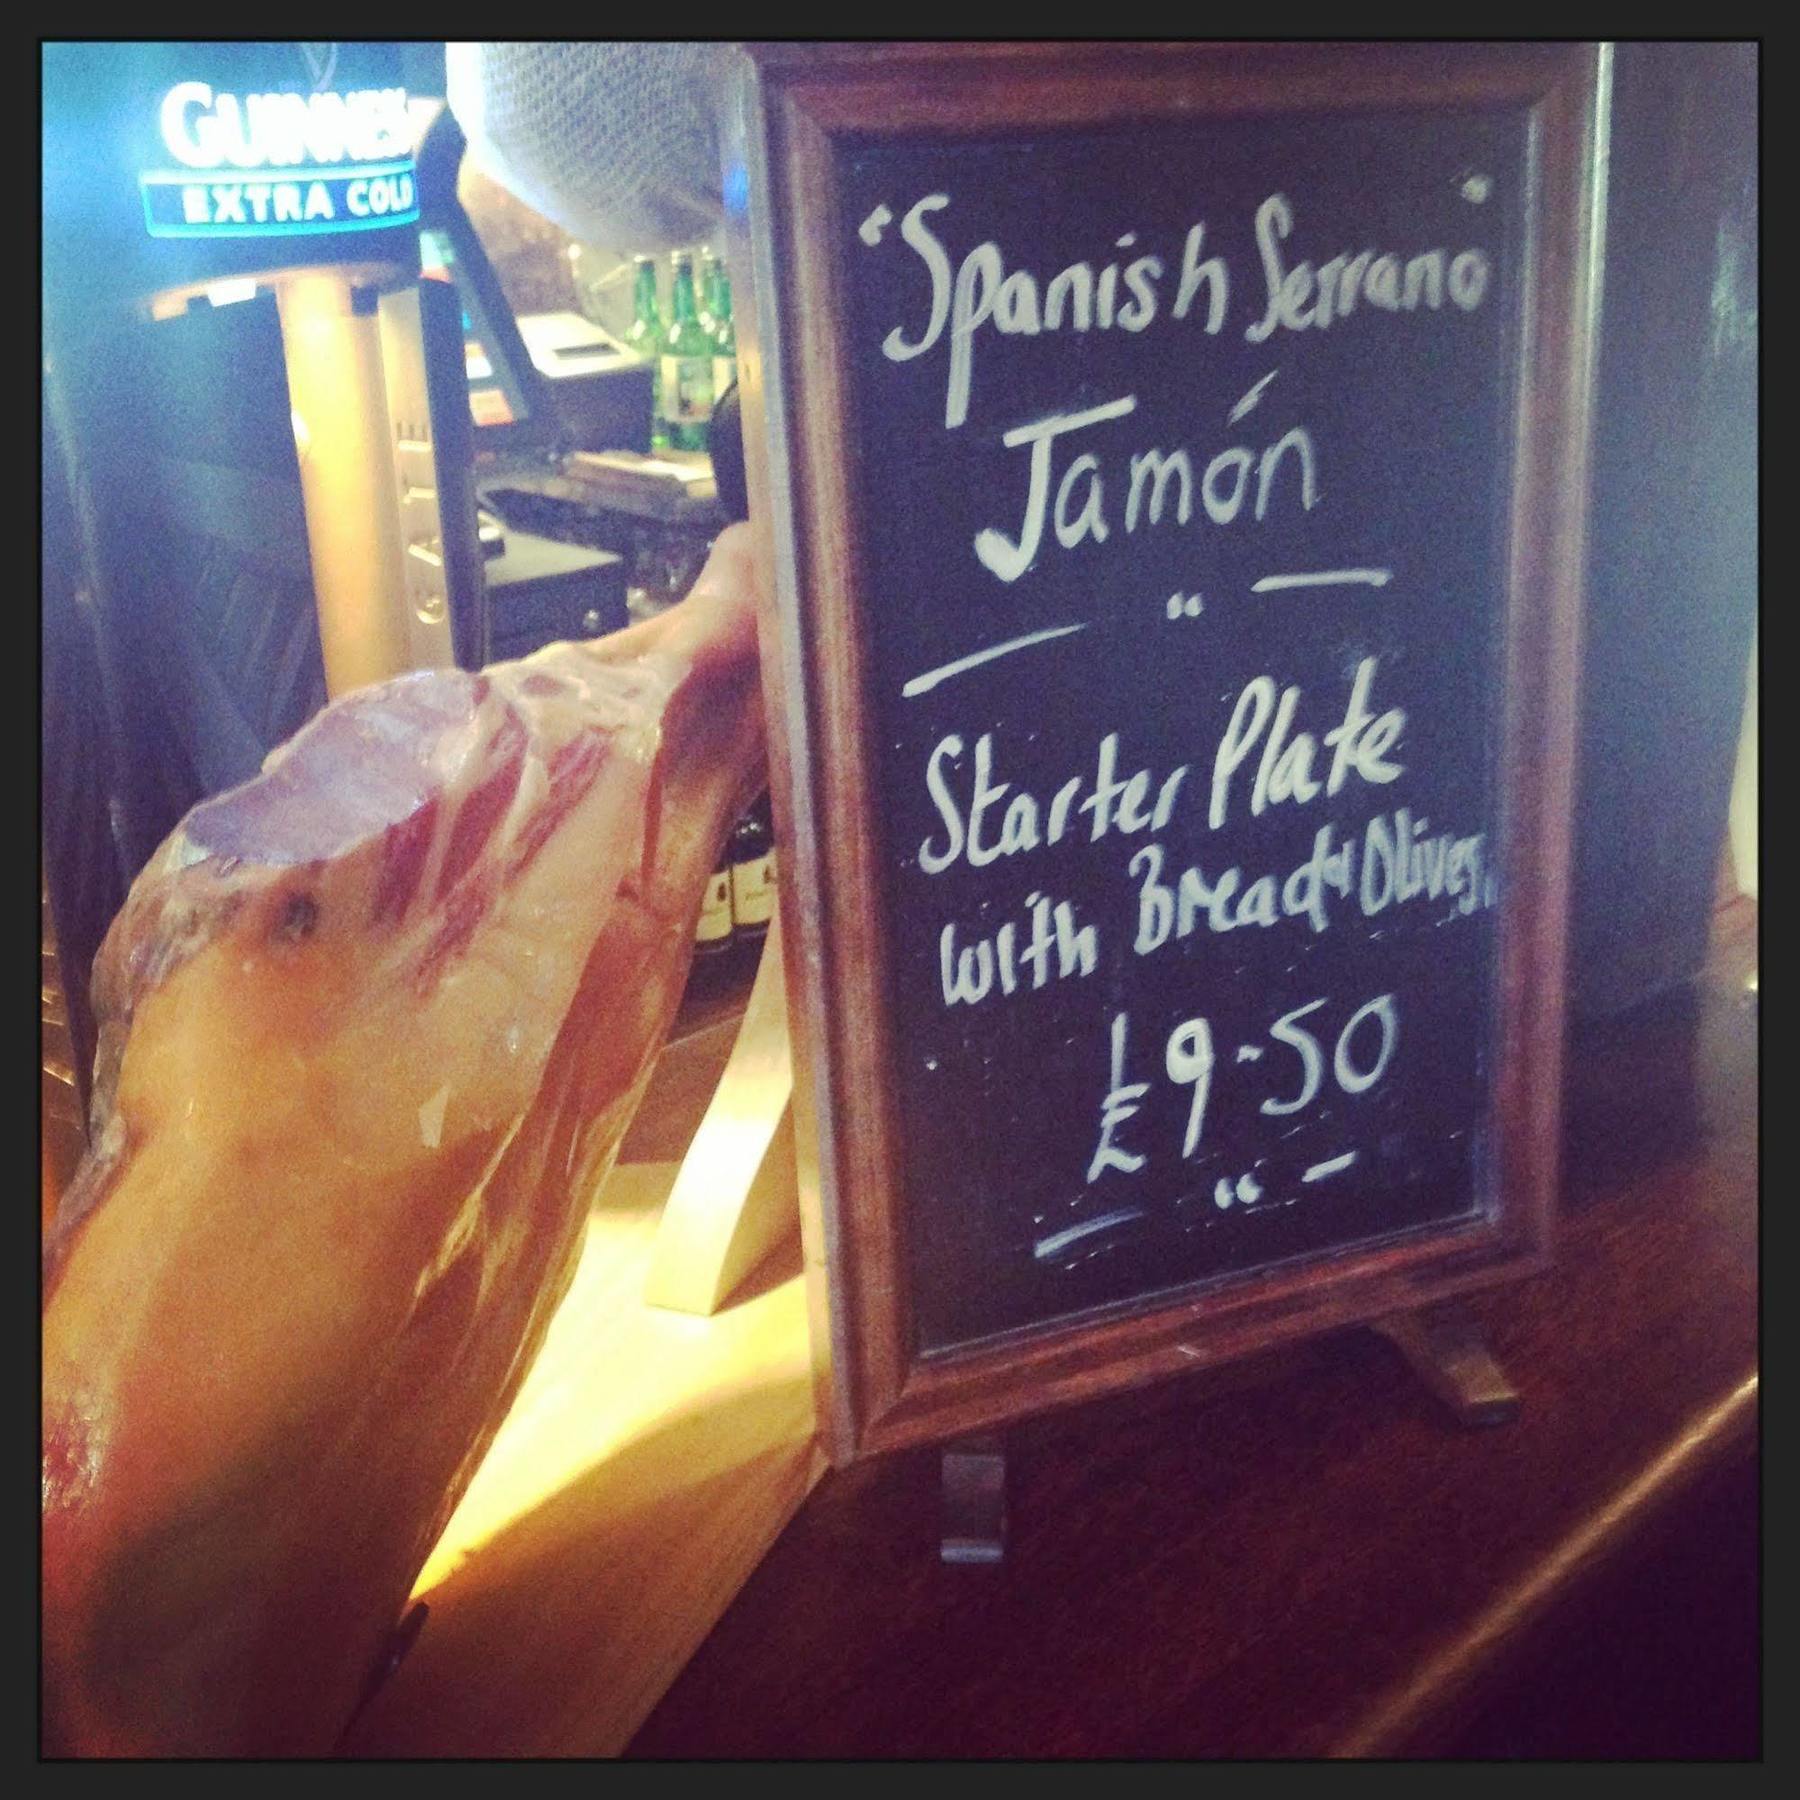 GUINNESS
EXTRA COLD
"Spanish Serrano"
Jamón
Starter Plate
with Bread & Olives.
£9-50